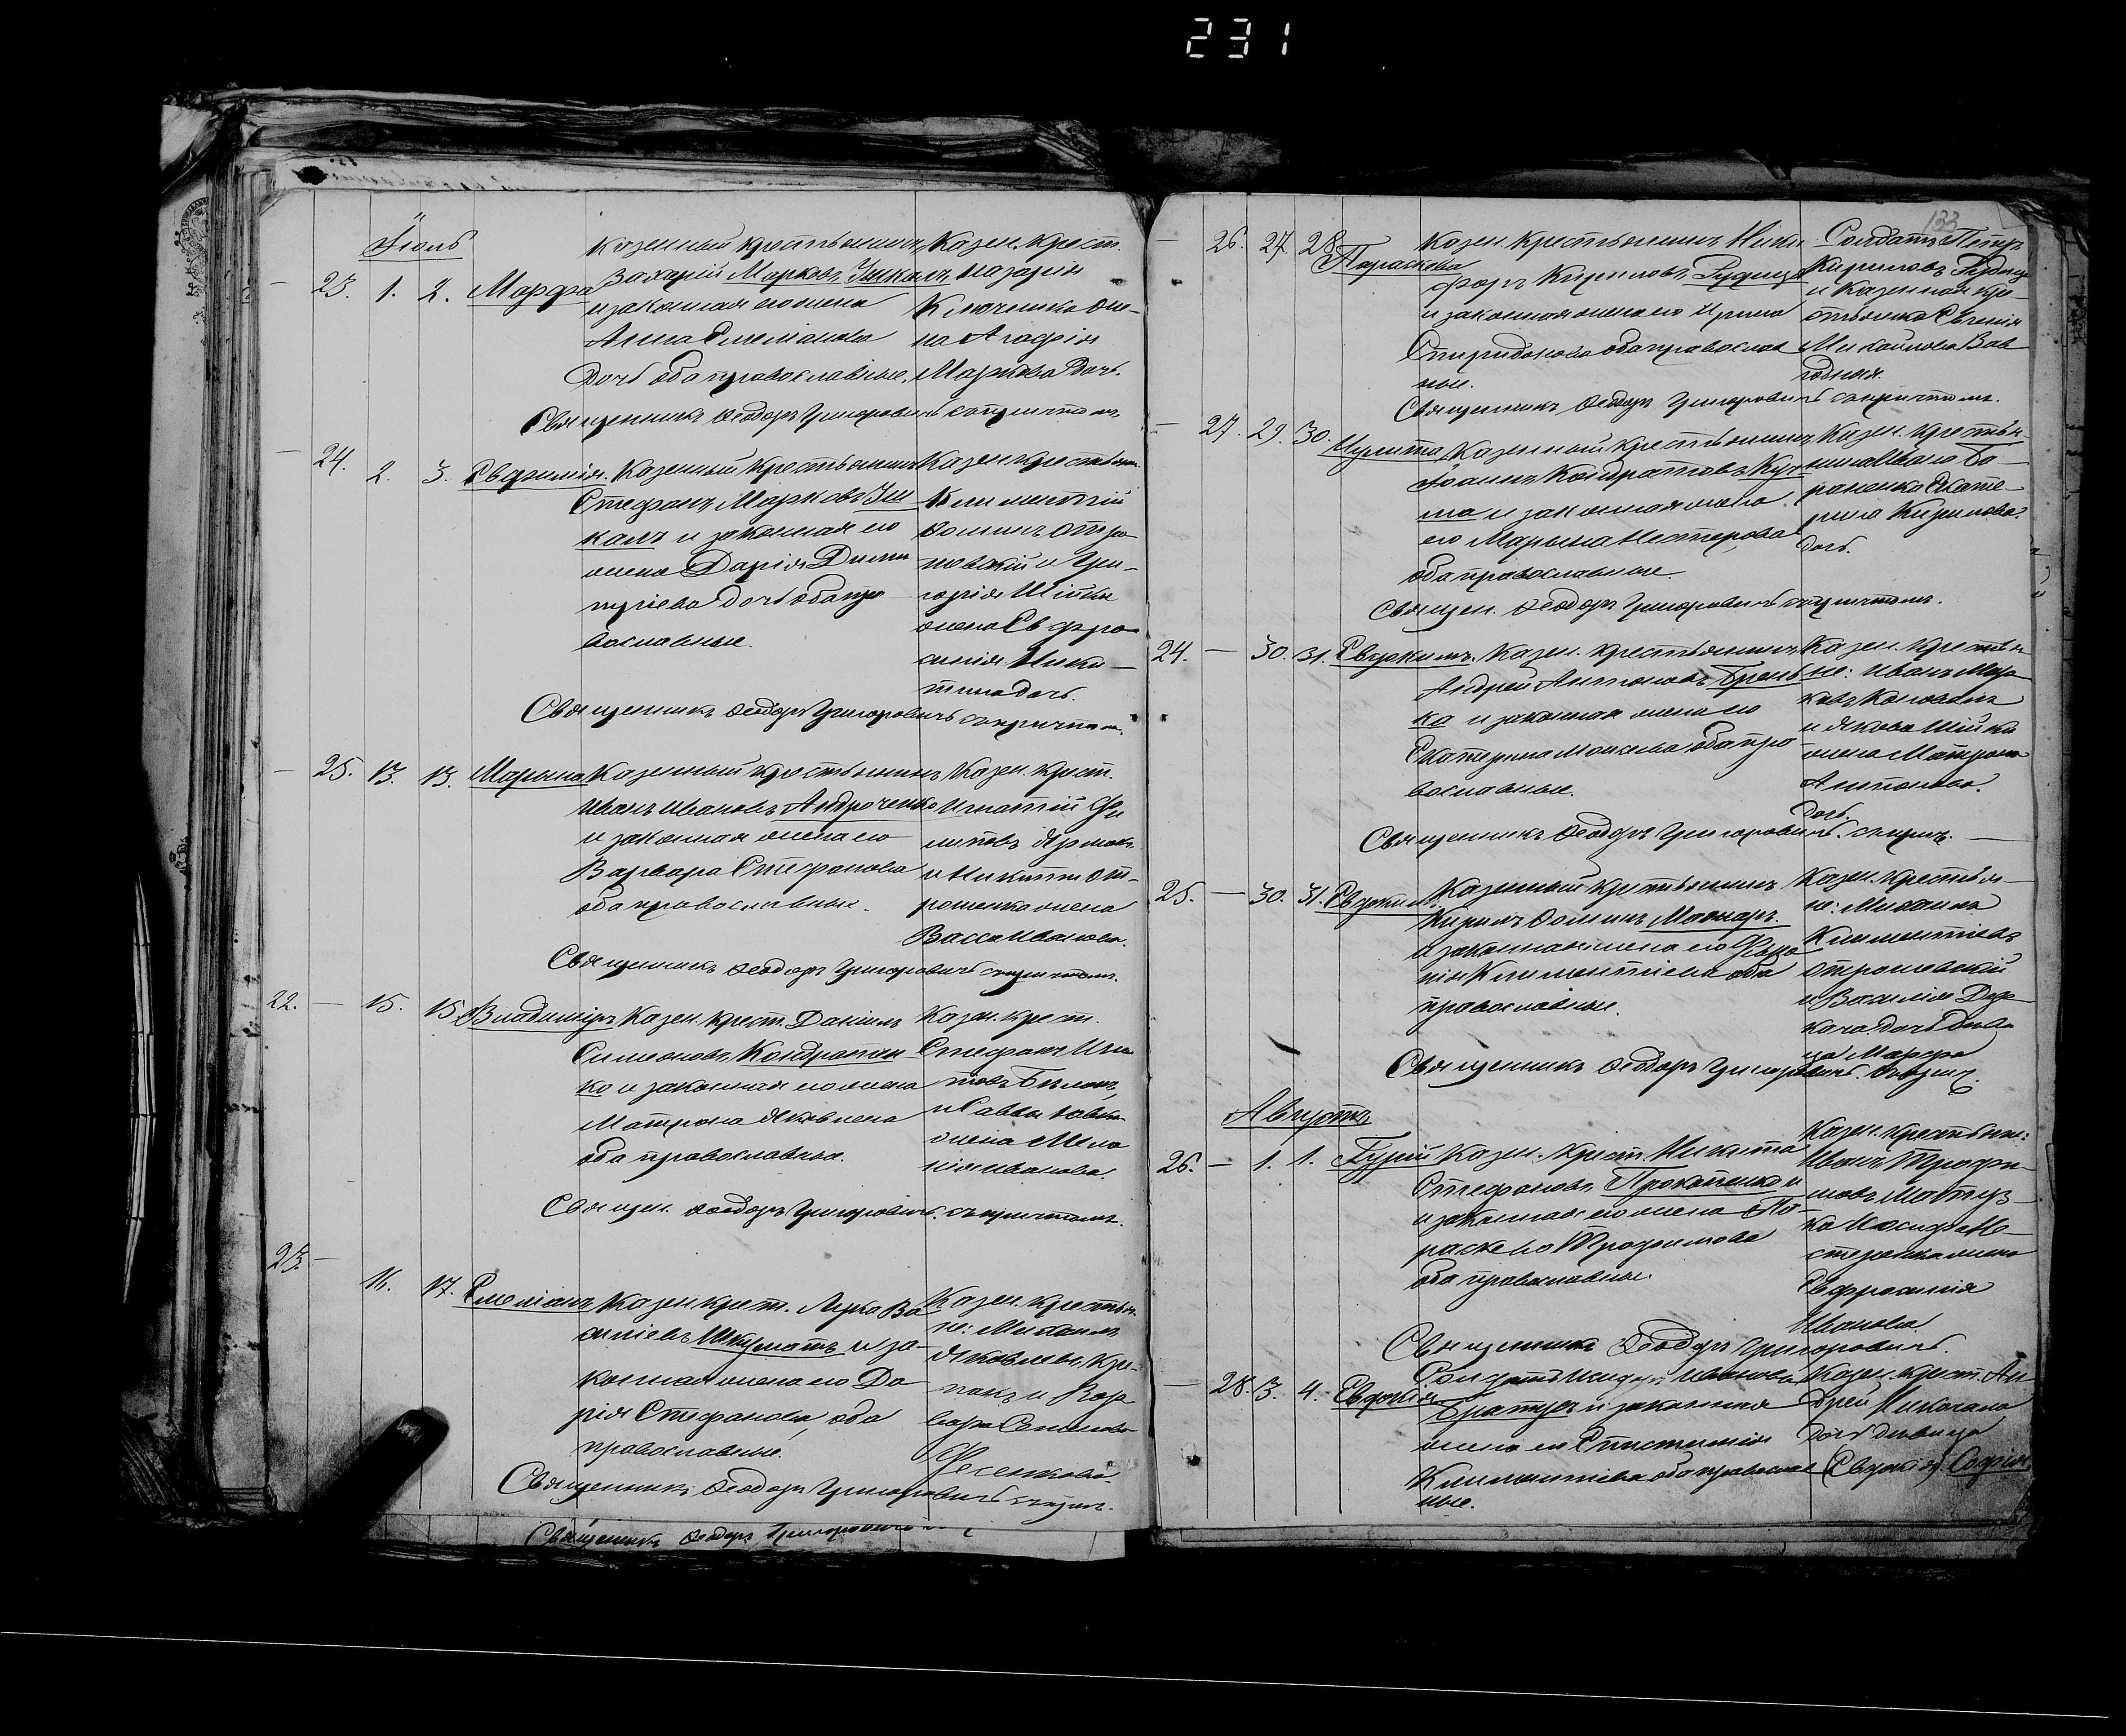 231
Іюль
23. 1. 2. Марфа
Казенный крестьянинъ
Захарій Марковъ Шкаль
и законная его жена
Анна Емеліанова
Дочь оба православные.
Казен. крест.
Назарія
Ключенка же-
на Агафія
Маркова Дочь.
Священникъ Ѳеодоръ Григоровичъ съ причтомъ
24. 2. 3. Евфимія.
Казенный крестьянинъ
Стефанъ Марковъ Шк
калъ и законная его
жена Дарія Дими
тріева дочь оба пра
вославные.
Казен. крестьян.
Климентій
Ѳоминъ Отро
шевскій и Гри-
горія Шійки
жена Евфро
синія Ники-
тина дочь.
Священникъ Ѳеодоръ Григоровичъ съ причтом.
25. 13. 13. Марына
Казенный крестьянинъ
Иванъ Ивановъ Андроченко
и законная жена его
Варвара Стефанова
оба православные.
Казен. крест.
Игнатій Фи
липовъ Ярмакъ
и Никиты От-
рошенка жена
Васса Иванова.
Священникъ Ѳеодоръ Григоровичъ съ причтомъ.
22. 15. 15. Владиміръ
Казен. крест. Даніилъ
Симеоновъ Кондратен
ко и законная его жена
Матрона Яковлева
оба православные.
Казен. крест.
Стефанъ Игна
товъ
и Саввы
жена Мела
нія Иванова.
Священ. Ѳеодоръ Григоровичъ съ причтомъ.
23. 16. 17. Емеліанъ
Казен. крест. Лука Ва
силіевъ Шкурматъ и за-
конная жена его Да
рія Стефанова, оба
православные.
Казен. крестьян
не: Михаилъ
Яковлевъ Кре-
панъ и Вар
вара Семенова
Фесенкова
Священникъ Ѳеодоръ Григоровичъ съ прич.
Священникъ Ѳеодоръ Григоровичъ
133
26. 27. 28. Параскева
Казен. крестьянинъ Ники
форъ Кириловъ Рудица
и законная жена его Ирина
Спиридонова оба православ
ные.
Солдатъ Петръ
Кириловъ Рудица
и Казенная кре-
стьянка Евгенія
Михайлова Вав
Священникъ Ѳеодоръ Григоровичъ съ причтомъ.
27. 29. 30. Иулита
Казенный крестьянинъ
Іоаннъ Кондратовъ Куч
ма и законная жена
его Марына Нестерова
оба православные.
Казен. крестьян
нина Ивана Бо-
раненка Екате-
рина Кирилова
дочь.
Священ. Ѳеодоръ Григоровичъ съ причтомъ.
24. 30. 31. Евдокимъ.
Казен. крестьянинъ
Андрей Антоновъ Брень
ка и законная жена его
Екатерина Моисеева оба пра
вославные.
Казен. крестьян
не: Иванъ Мар
ковъ Коновалъ
и Якова Шійки
жена Матрона
Антонова.
дочь.
Священникъ Ѳеодоръ Григоровичъ. съ прич.
25. 30. 31. Евдокимъ
Казенный крестьянинъ
Кирилъ Ѳоминъ
и законная жена его
Климентіева оба
православные.
Казен. крестья-
не: Михаилъ
Климентіевъ
Отрошевскій
и Василія Дер
кача. дочь дѣви
ца Марфа
Священникъ Ѳеодоръ Григоровичъ. съ прич.
Августъ
26. 1. 1. Гурій
Казен. крест. Никита
Стефановъ Прокопенко и
и законная его жена Па-
раскева Трофимова
оба православные.
Казен. крестьяне:
Иванъ Трофи-
мовъ Матуз-
ка Иосифа Не-
стеренка жена
Евфросинія
Иванова.
Священникъ Ѳеодоръ Григоровичъ.
28. 3. 4. Евдокія
Солдатъ Исидоръ Ивановъ
Братусъ и законная
жена его Епистимія
Климентіева оба православ
ные.
Казен. крест. Ан-
дрей Николаева
дочь дѣвица
Евдокія. Софія